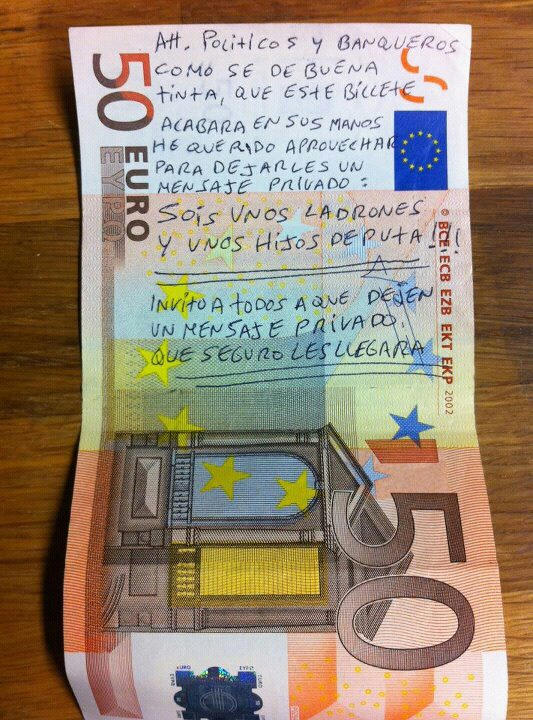 Att. POLITICOS Y BANQUEROS
COMO SE DE BUENA
TINTA, QUE ESTE BILLETE
ACABARA EN SUS MANOS
HE QUERIDO APROVECHAR
PARA DEJARLES UN
MENSAJE PRIVADO:
SOIS UNOS LADRONES
Y UNOS HIJOS DE PUTA!!!
INVITO A TODOS A QUE DEJEN
UN MENSAJE PRIVADO.
QUE SEGURO LES LLEGARA
50 EURO
ΕΥΡΩ
© BCE ECB EZB EKT EKP 2002
50